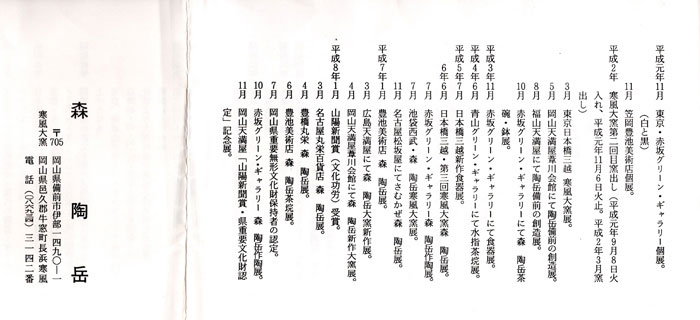 平成元年11月　東京・赤坂グリーン・ギャラリー個展。
（白と黒）
11月　笠岡豊池美術店個展。
平成2年　寒風大窯第二回目窯出し（平成元年9月8日火
入れ、平成元年11月6日火止。平成2年3月窯
出し）
3月　東京日本橋三越　寒風大窯展。
5月　岡山天満屋葦川会館にて陶岳備前の創造展。
8月　福山天満屋にて陶岳備前の創造展。
10月　赤坂グリーン・ギャラリーにて森　陶岳茶
碗・鉢展。
平成3年11月　赤坂グリーン・ギャラリーにて食器展。
平成4年6月　青山グリーン・ギャラリーにて水指茶碗展。
平成5年7月　日本橋三越新作食器展。
6年6月　日本橋三越・第三回寒風大窯森　陶岳展。
7月　赤坂グリーン・ギャラリー森　陶岳作陶展。
7月　池袋西武・森　陶岳寒風大窯展。
11月　名古屋松坂屋にてさむかぜ森　陶岳展。
平成7年1月　豊池美術店　森　陶岳展。
3月　広島天満屋にて森　陶岳大窯新作展。
4月　岡山天満屋葦川会館にて森　陶岳新作大窯展。
平成8年1月　山陽新聞賞（文化功労）受賞。
3月　名古屋丸栄百貨店　森　陶岳展。
4月　豊橋丸栄　森　陶岳展。
6月　豊池美術店　森　陶岳茶碗展。
7月　岡山県重要無形文化財保持者の認定。
10月　赤坂グリーン・ギャラリー　森　陶岳作陶展。
11月　岡山天満屋「山陽新聞賞・県重要文化財認
定」記念展。
森　陶　岳
〒705　岡山県備前市伊部一四九〇―一
寒風大窯　岡山県邑久郡牛窓町長浜寒風
電　話（〇八六九三四）三一四二番